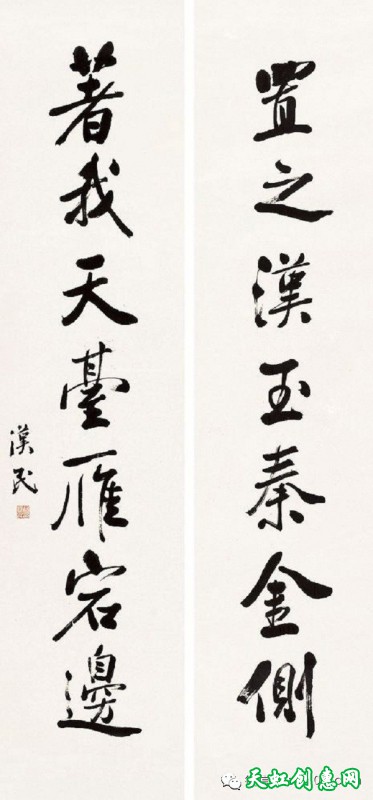 置之漢玉秦金側
著我天臺雁宕邊
漢民
天虹创惠网